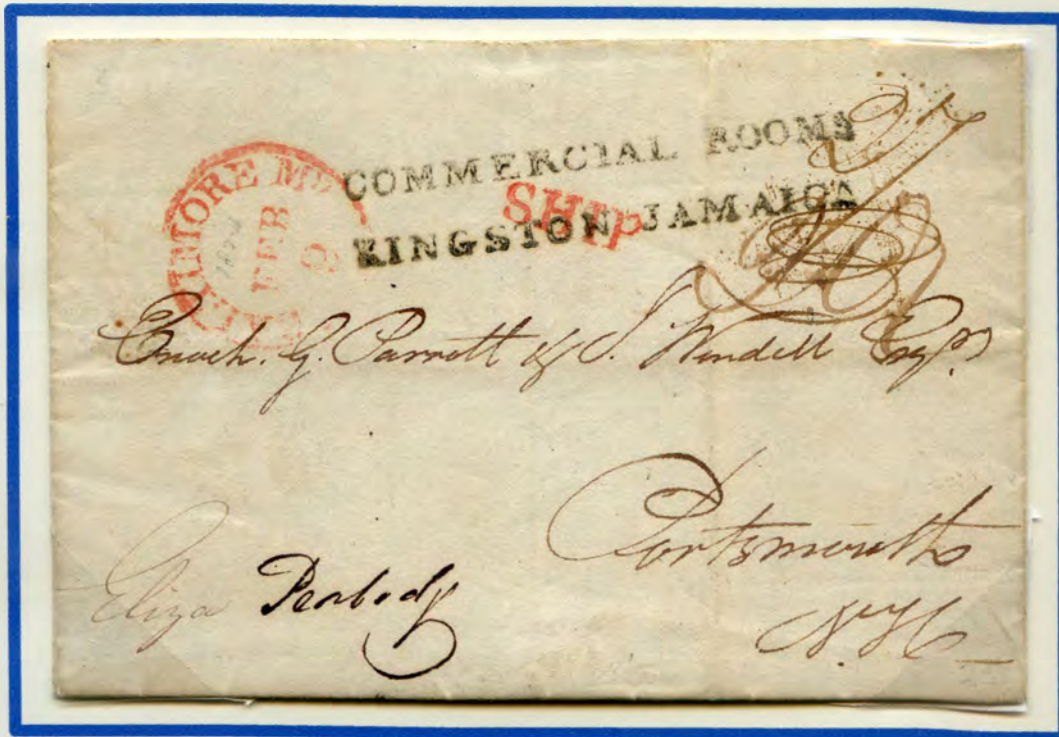 BALTIMORE MD
FEB
9
COMMERCIAL ROOMS
KINGSTON JAMAICA
SHIP
27
Enoch. G. Parrott & J. Wendell Esqrs
Portsmouth
N.H.
Eliza Peabody